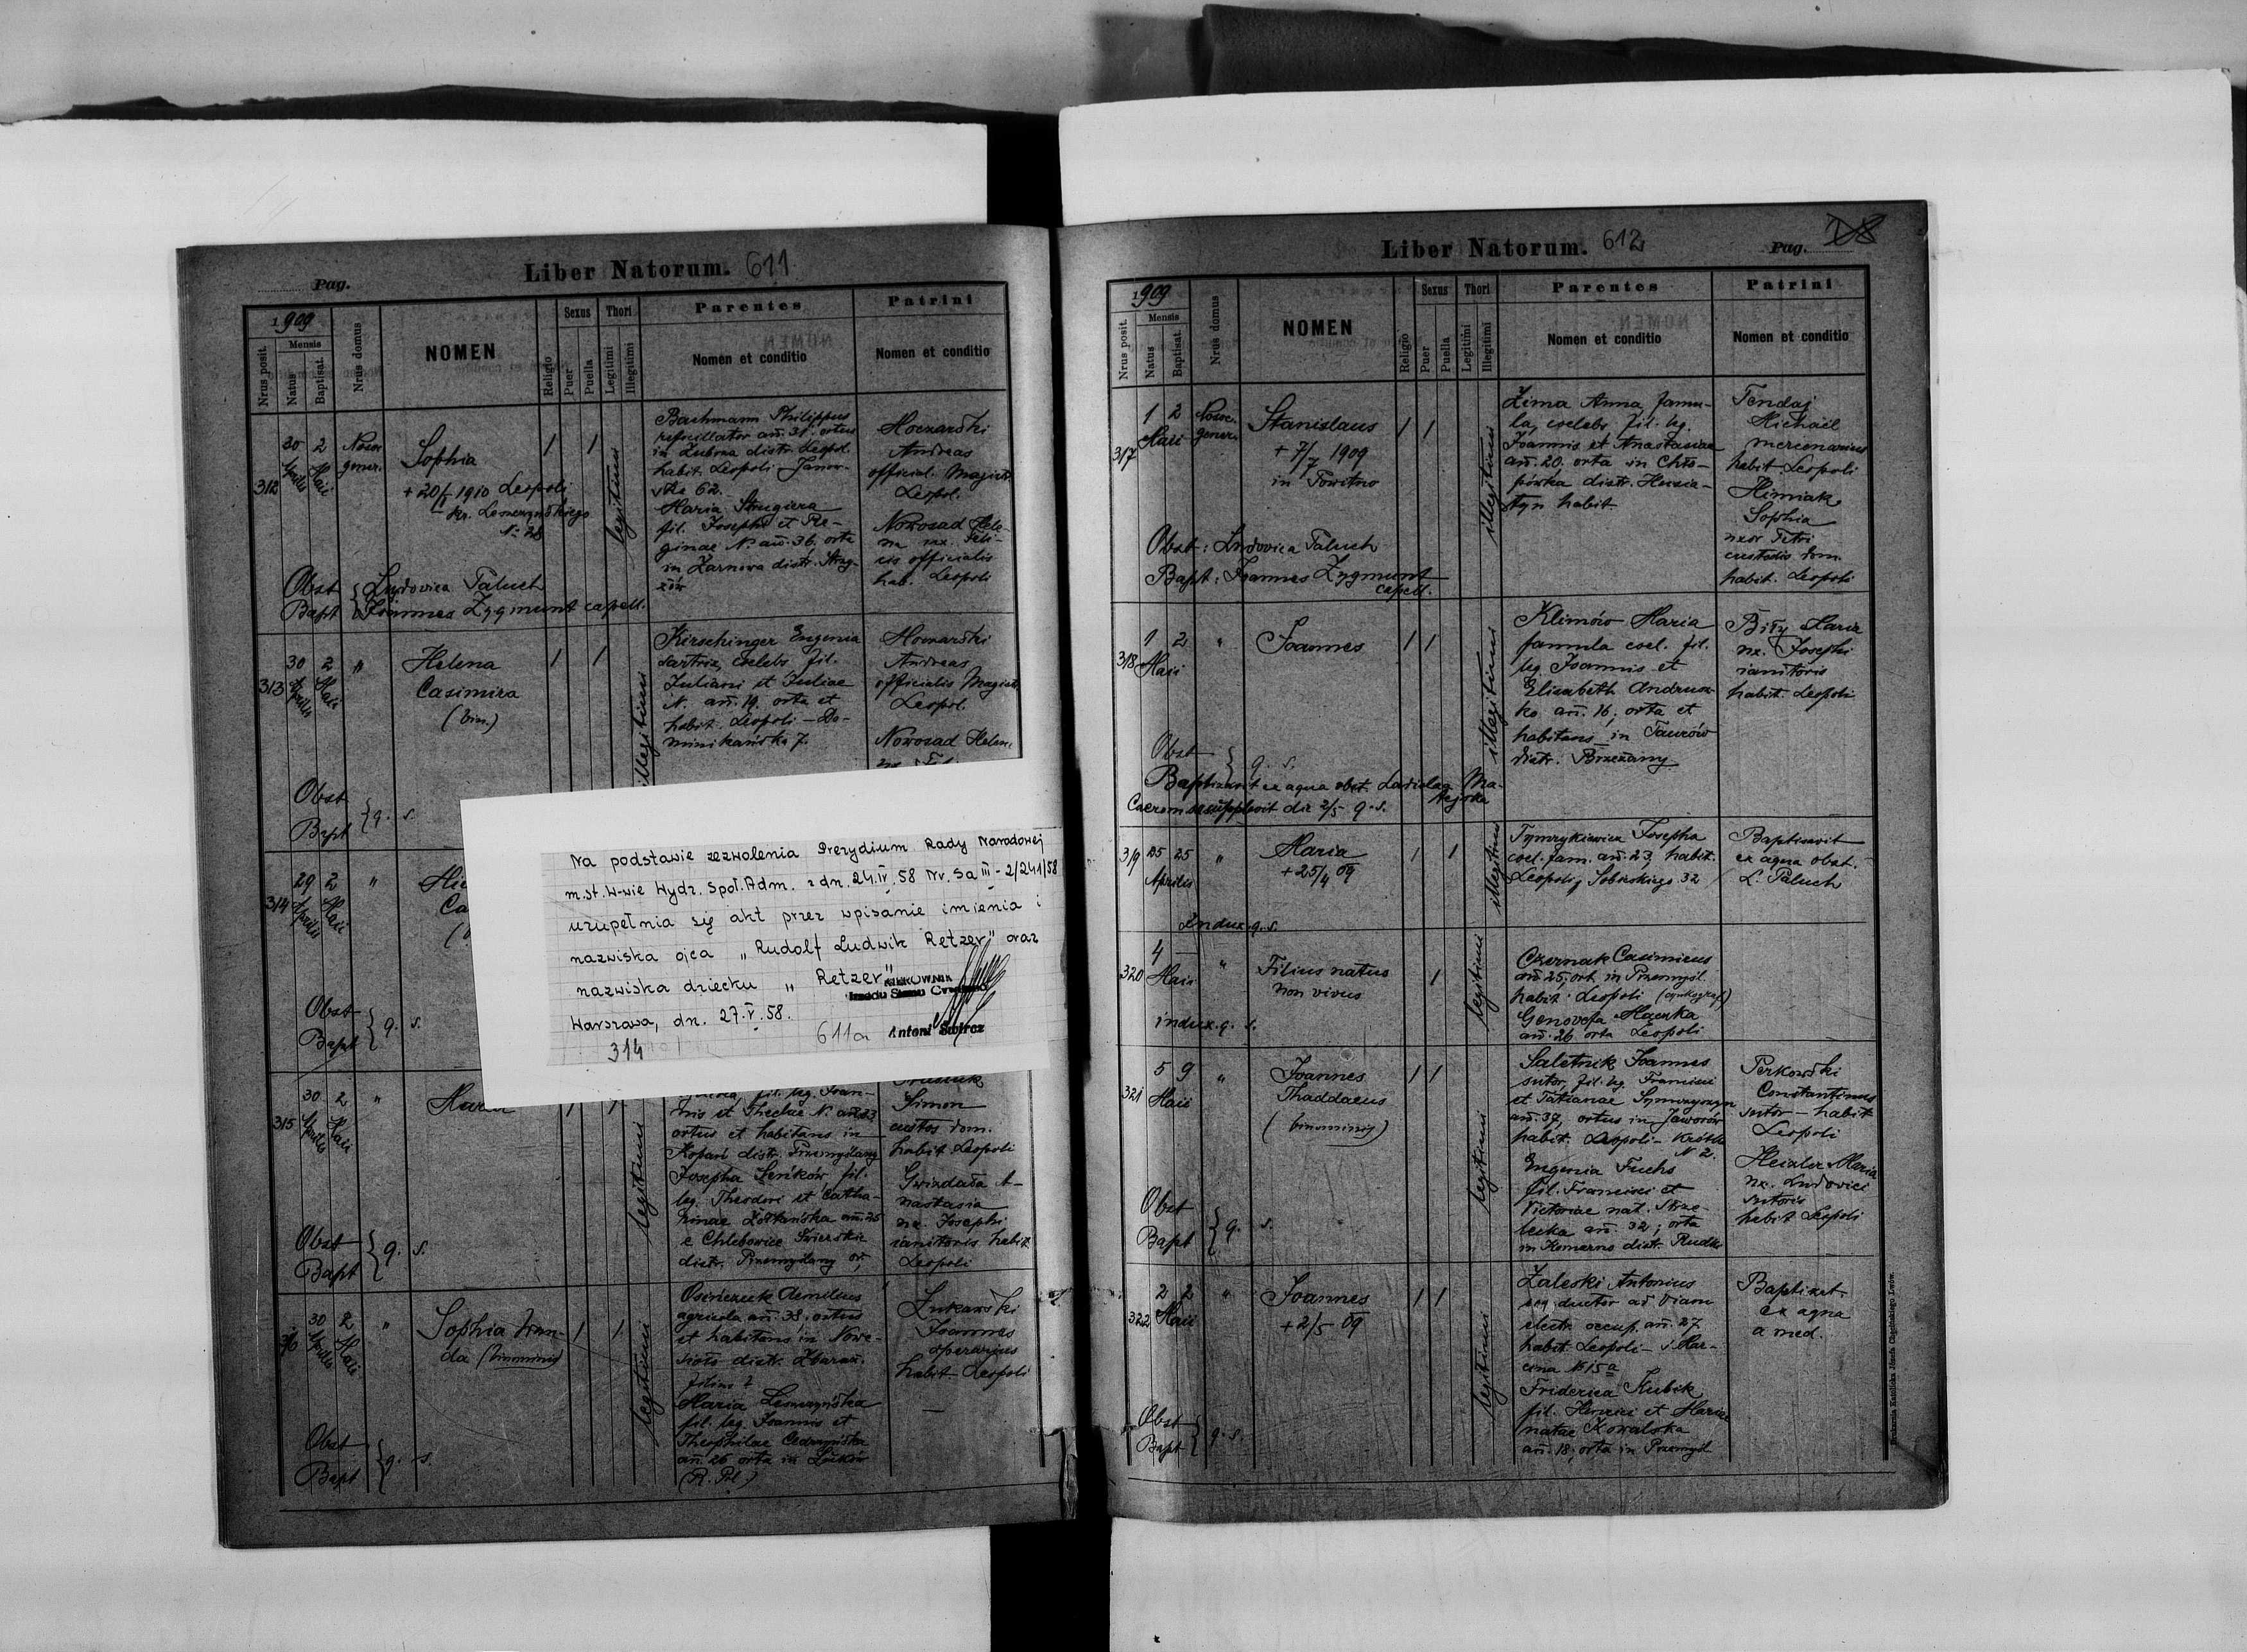 Liber Natorum. 611
Pag.
1909
Nrus posit.
Mensis
Natus
Baptisat.
Nrus domus
NOMEN
Religio
Sexus
Puer
Puella
Thori
Legitimi
Illegitimi
Parentes
Nomen et conditio
Patrini
Nomen et conditio
312
30 2
Aprilis Maii
Sophia
1 1
legitimi
Bachmann Philippus
añ. 31, ortus
in Zubrza distr. Leopol.
habit. Leopoli Janow-
ska 62.
Maria Strugiera
fil. Josephi et Re-
ginae N. añ. 36. orta
in Żarnowa distr. Strzy-
żów
Moczarski
Andreas
official. Magistr.
Leopol.
Nowosad Hele-
na ux. Feli-
cis officialis
hab. Leopoli
+ 20/ 1910 Leopoli
Nº 28
Obst { Ludovica Paluch
Bapt { Joannes Zygmunt capell.
313
30 2 "
Aprilis Maii
Helena
Casimira
(bin.)
1 1
illegitimi
Kirschinger Eugenia
sartrix, coelebs fil.
Juliani et Juliae
N. añ. 19. orta et
habit. Leopoli – Do-
minikańska 7.
Moczarski
Andreas
officialis Magistr.
Leopol.
Nowosad Helena
Obst
Bapt } q. s.
314
29 2 "
Aprilis Maii
Ca
Obst
Bapt } q. s.
Na podstawie zezwolenia Prezydium Rady Narodowej
m.st. W-wie Wydz. Społ. Adm. z dn. 24.IV.58 Nr. Sa III - 2/241/58
uzupełnia się akt przez wpisanie imienia i
nazwiska ojca „Rudolf Ludwik Retzer" oraz
nazwiska dziecku „Retzer"
KIEROWNIK
Urzędu Stanu Cywilnego
Warszawa, dn. 27.V.58.
314
611a
Antoni
315
30 2 "
Aprilis Maii
Maria
1 1
legitimi
fil. leg. Joan-
nis et Theclae N. añ. 23
ortus et habitans in
Kopań distr. Przemyślany
Josepha Seńków fil.
leg. Theodori et Catha-
rinae Żółtańska añ. 25
e Chlebowice Świrskie
distr. Przemyślany or.
Simon
custos dom.
habit. Leopoli
Gwizdała A-
nastasia
ux. Josephi
ianitoris habit.
Leopoli
Obst
Bapt } q. s.
316
30 2 "
Aprilis Maii
Sophia Wan-
da (binominis)
1 1
legitimi
agricola añ. 38, ortus
et habitans in Nowe-
sioło distr. Zbaraż.
filius ?
Maria Leszczyńska
fil. leg. Joannis et
Theophilae
añ. 26 orta in Łuków
(R. Pol.)
Żukowski
Joannes
operarius
habit. Leopoli
—
Obst
Bapt } q. s.
Liber Natorum. 612
Pag.
1909
Nrus posit.
Mensis
Natus
Baptisat.
Nrus domus
NOMEN
Religio
Sexus
Puer
Puella
Thori
Legitimi
Illegitimi
Parentes
Nomen et conditio
Patrini
Nomen et conditio
317
1 2
Maii
Stanislaus
+ 7/7 1909
in Towitno
1 1
illegitimi
Zima Anna famu-
la, coelebs fil. leg.
Joannis et Anastasiae
añ. 20. orta in Chło-
pówka distr. Husia-
tyn habit.
Tendaj
Michaël
mercenarius
habit. Leopoli
Himiak
Sophia
uxor Petri
custodis dom.
habit. Leopoli
Obst: Ludovica Paluch
Bapt: Joannes Zygmunt
capell.
318
1 2 "
Maii
Joannes
1 1
illegitimi
Klimów Maria
famula coel. fil.
leg. Joannis et
Elisabeth Andrusz-
ko añ. 16; orta et
habitans in Taurów
distr. Brzeżany
Biły Maria
ux. Josephi
ianitoris
habit. Leopoli
Obst } q. s.
Baptizavit ex aqua obst. Ladislaa Ma-
tejska
Caerem. supplevit die 2/5 q. s.
319
25 25 "
Aprilis
Maria
+ 25/4 09
1 1
illegitimi
Tymrykiewicz Josepha
coel. fam. añ. 23, habit.
Leopoli, Sobieskiego 32
Baptisavit
ex aqua obst.
L. Paluch
Indux. q. s.
320
4 — "
Maii
Filius natus
non vivus
1
legitimi
Czernak Casimirus
añ 25, ort. in Przemyśl
habit. Leopoli (cynkograf)
Genovefa Maczka
añ. 26 orta Leopoli
indux. q. s.
321
5 9 "
Maii
Joannes
Thaddaeus
(binominis)
1 1
legitimi
Saletnik Joannes
sutor, fil. leg. Francisci
et Tatianae
añ. 37, ortus in Jaworów
habit. Leopoli – Krótka
N 2.
Eugenia Fuchs
fil. Francisci et
Victoriae nat. Strze-
lecka añ. 32; orta
in Komarno distr. Rudki
Perkowski
Constantinus
sutor – habit.
Leopoli
Heixler Maria
ux. Ludovici
sutoris
habit. Leopoli
Obst
Bapt } q. s.
322
2 2 "
Maii
Joannes
+ 2/5 09
1 1
legitimi
Zaleski Antonius
ductor ad viam
electr. occup. añ. 27
habit. Leopoli – S. Mar-
cina N 15a
Friderica Kubik
fil. Henrici et Mariae
natae Kowalska
añ. 18, orta in Przemyśl
Baptizat.
ex aqua
a med.
Obst
Bapt } q. s.
Drukarnia Katolicka Józefa Chęcińskiego Lwów.